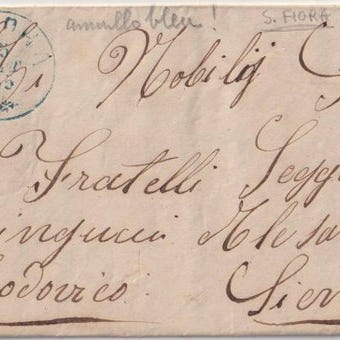 annullo bleu! S. FIORA
Nobilij
Fratelli Segg
inguicci Alesa
odovico Sien